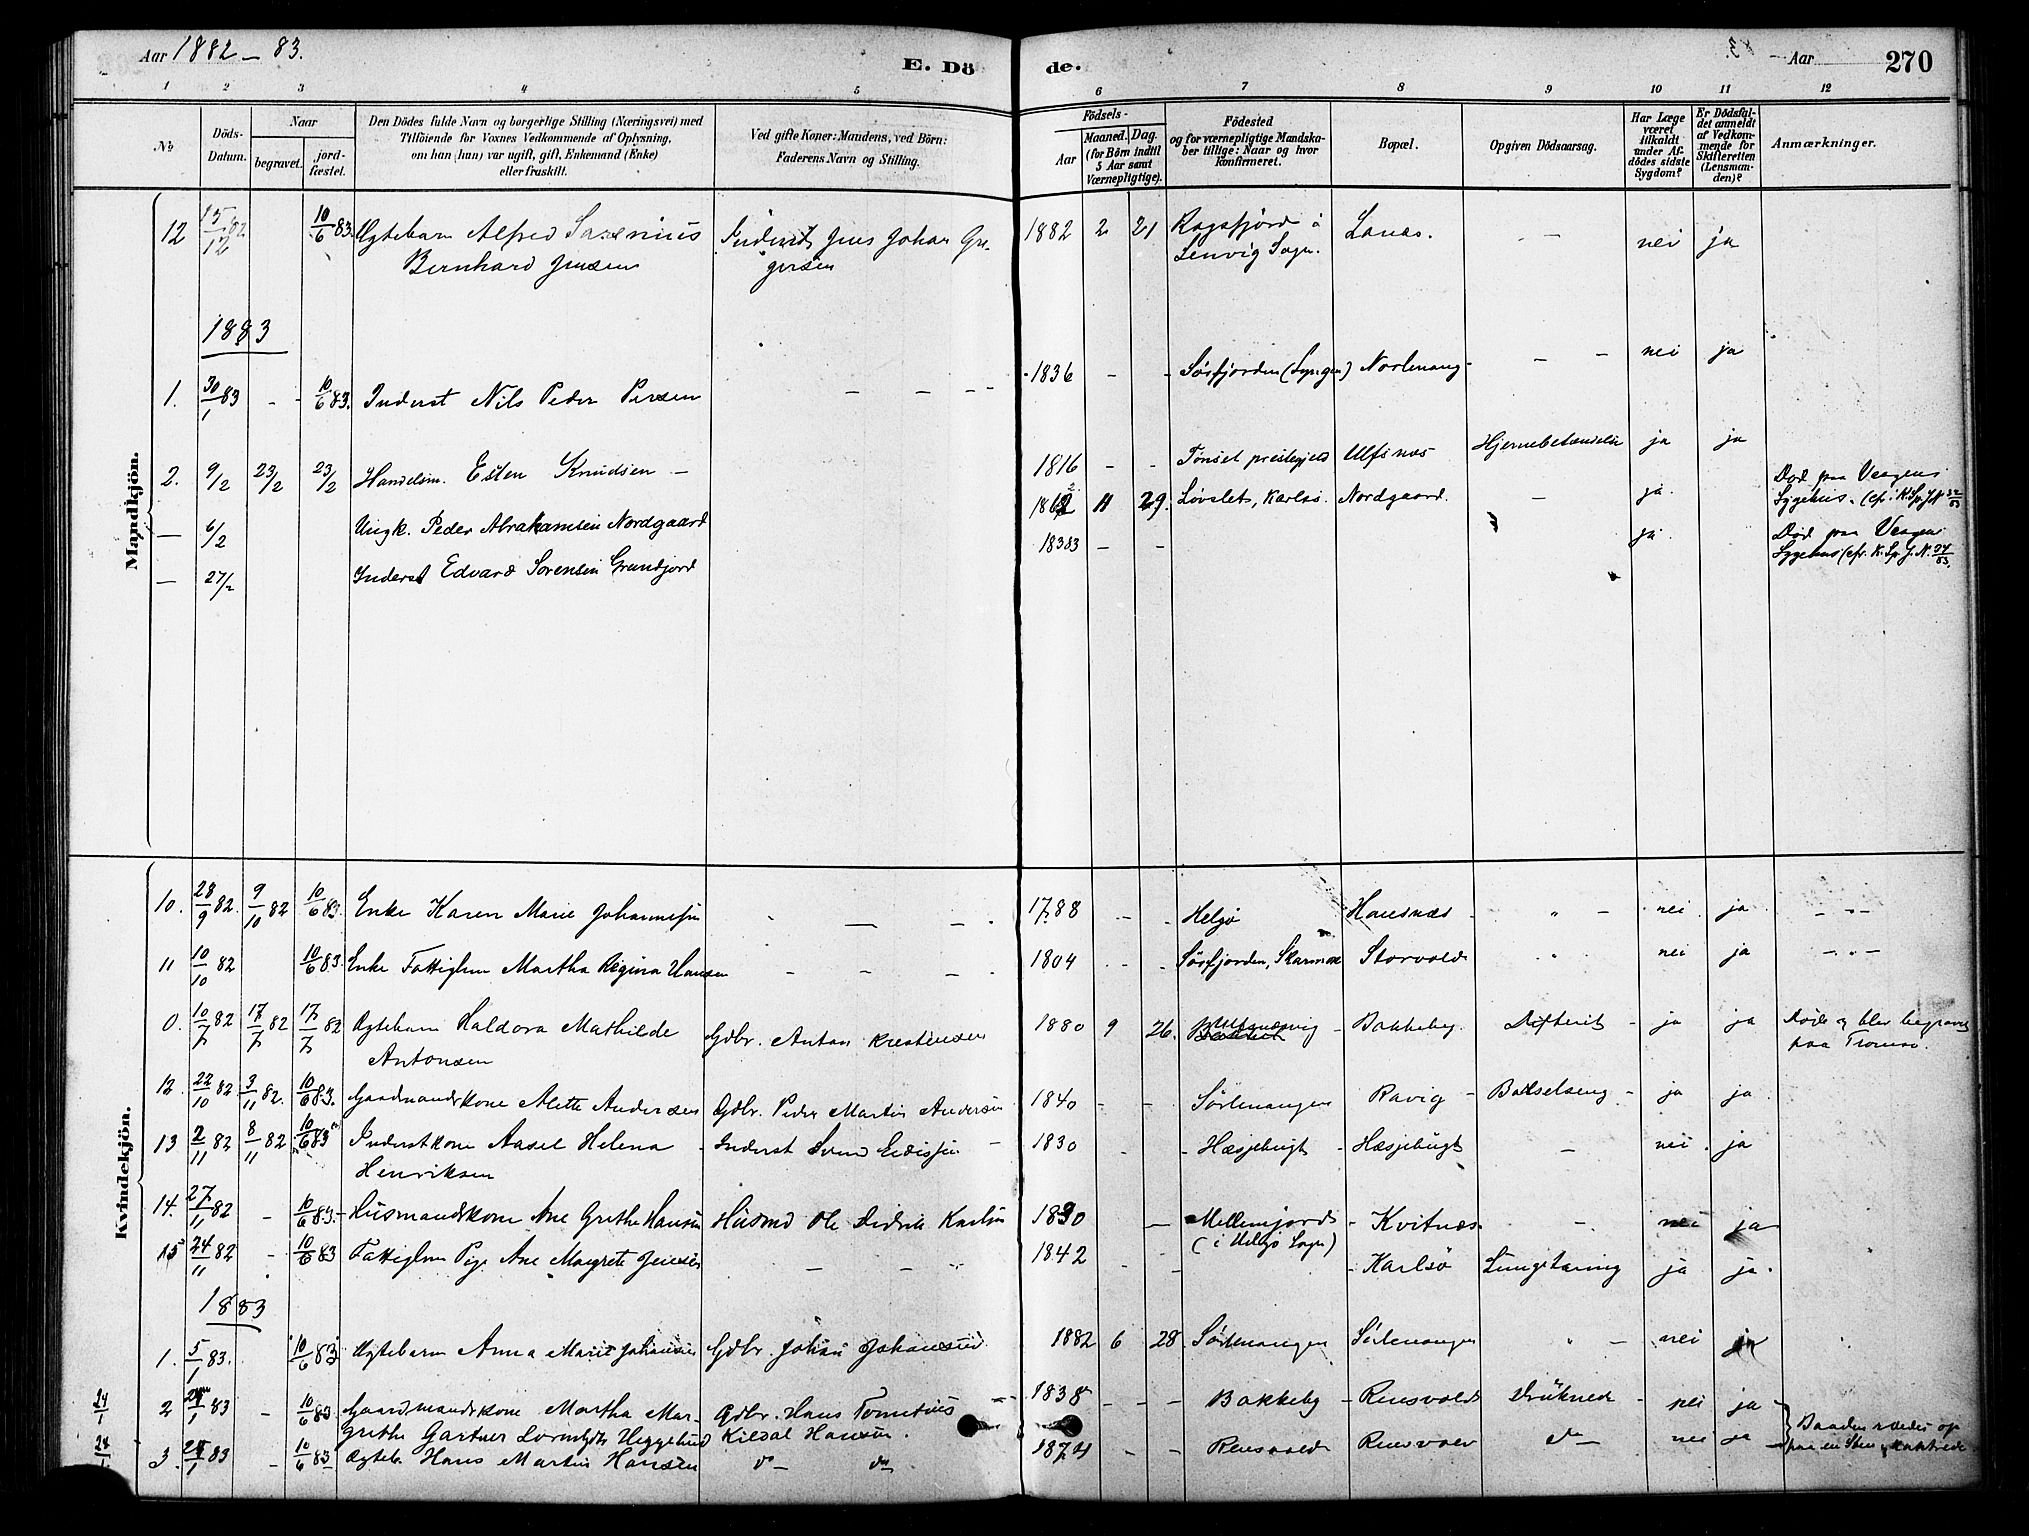 Aar 1882 – 83.
E. Dö de.
Aar
270
1 2 3 4 5 6 7 8 9 10 11 12
No
Döds-Datum.
Naar
begravet.
jord-fæstet.
Den Dödes fulde Navn og borgerlige Stilling (Næringsvei) med
Tilföiende for Voxnes Vedkommende af Oplysning,
om han (hun) var ugift, gift, Enkemand (Enke)
eller fraskilt.
Ved gifte Koner: Mandens, ved Börn:
Faderens Navn og Stilling.
Födsels-
Aar
Maaned. Dag.
(for Börn indtil
5 Aar samt
Værnepligtige).
Födested
og for værnepligtige Mandska-
ber tillige: Naar og hvor
konfirmeret.
Bopæl.
Opgiven Dödsaarsag.
Har Læge
været
tilkaldt
under Af-
dödes sidste
Sygdom?
Er Dödsfal-
det anmeldt
af Vedkom-
mende for
Skifteretten
(Lensman-
den)?
Anmærkninger.
Mandkjön.
12 15/12 82 10/6 83. Ægtebarn Alfred Bernhard Jensen Inderst Jens Johan Gregersen 1882 2 21 Lenvig Sogn. Lanæs. – nei ja
1883
1. 30/1 83 - 10/6 83. Inderst Nils Peder Persen – – – 1836 - - Sörfjorden (Lyngen) Norlenang – – nei ja
2. 9/2 23/2 23/2 Handelsm. Esten Knudsen – 1816 – – Tönset prestegjeld Ulfsnæs Hjernebetændelse ja ja
— 6/2 Ungk. Peder Abrahamsen Nordgaard 1862 11 29. Karlsö. Nordgaard. – ja. Död paa Veagens Sygehus. (cfr. K. Sp. J. N. 32/83
— 27/2 Inderst Edvard Sörensen Grundfjord 1838 – – ja. Död paa Veagens Sygehus (cfr. K. Sp. J. N. 34/83.
Kvindekjön.
10. 28/9 82. 9/10 82 10/6 83. Enke Karen Marie Johannesen — – 1788 – - Helgö Hansnæs – " – nei ja – " –
11 10/10 82 10/6 83. Enke Fattiglem Martha Regina Hansen – – – 1804 - - Sörfjorden, Storvold nei ja – " –
0. 10/7 82 17/7 82 17/7 82 Ægtebarn Haldora Mathilde Antonsen Gdbr. Anton Kristensen 1880 9 26. Bakkeby. Difterit – ja ja Döde og blev begravet paa Tromsö.
12. 22/10 82 3/11 82. 10/6 83. Gaardmandskone Alette Andersen Gdbr. Peder Martin Andersen 1840 - - Sörlenangen Ravig – Barselseng – ja ja
13 2/11 82 8/11 82 10/6 83 Inderstkone Aasel Helena Henriksen – Inderst – 1830 - - Hæsjebugt – Hæsjebugt – nei. ja
14. 27/11 82 – 10/6 83. Husmandskone Ane Grethe Hansen Husmd Ole Didrik Karlsen 1830 — Mellemjord (i Helgö Sogn) – Kvitnæs – nei ja
15 24/11 82 - 10/6 83 Fattiglem Pige Ane Margrete Jensen – – – 1842 - - – Karlsö Lungetæring ja ja.
1883
1. 5/1 83. 10/6 83 Ægtebarn Anna Marie Johansen Gdbr. Johan Johansen 1882 6 28. Sörlenangen Sörlenangen " – nei ja
24/1 2 24/1 83 – 10/6 83 Gaardmandskone Martha Margrethe Gdbr. Hans Tometius Kildal Hansen. 1838 – – – Bakkeby – Rensvold Druknede – nei ja
24/1 3. 24/1 83 – 10/6 83 Ægteb. Hans Martin Hansen do – do 1874 – – Rensvold Rensvold do – nei ja Baaden paa en Sten